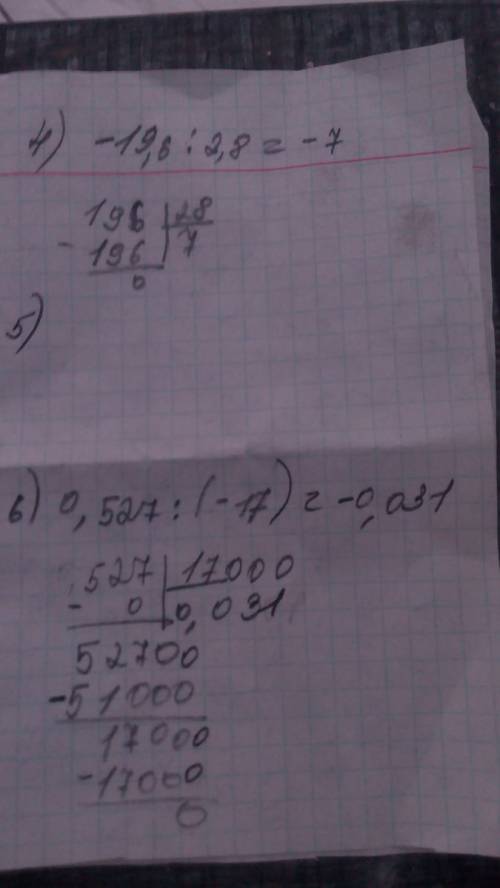 4) -19,6 : 2,8 = -7
196 | 28
- 196 | 7
0
5)
6) 0,527 : (-17) = -0,031
527 | 17000
- 0 | 0,031
52700
-51000
17000
-17000
0